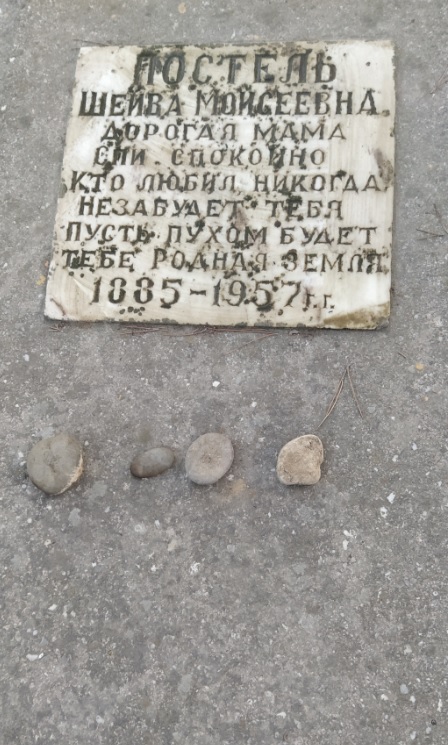 ПОСТЕЛЬ
ШЕЙВА МОИСЕЕВНА
ДОРОГАЯ МАМА
СПИ СПОКОЙНО
КТО ЛЮБИЛ, НИКОГДА
НЕЗАБУДЕТ ТЕБЯ
ПУСТЬ ПУХОМ БУДЕТ
ТЕБЕ РОДНАЯ ЗЕМЛЯ
1885-1957 г.г.